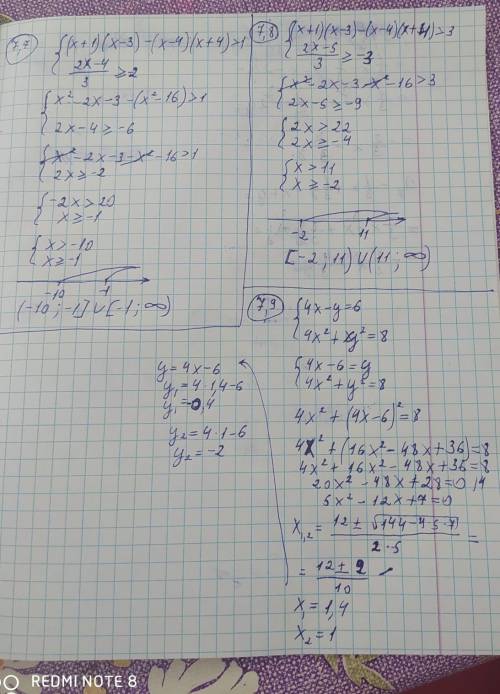 7,7
{(x+1)(x-3)-(x-4)(x+4)>1
{(2x-4)/3 ≥-2
{x²-2x-3-(x²-16)>1
{2x-4≥-6
{x²-2x-3-x²-16>1
{2x≥-2
{-2x>20
{x≥-1
{x>-10
{x≥-1
-10 -1
(-10;-1]∪[-1;∞)
7,8
{(x+1)(x-3)-(x-4)(x+4)>3
{(2x-5)/3 ≥-3
{x²-2x-3-x²-16>3
{2x-5≥-9
{2x>22
{2x≥-4
{x>11
{x≥-2
-2 11
[-2;11)∪(11;∞)
7,9
{4x-y=6
{4x²+y²=8
{4x-6=y
{4x²+y²=8
4x²+(4x-6)²=8
4x²+(16x²-48x+36)=8
4x²+16x²-48x+36=8
20x²-48x+28=0 /4
5x²-12x+7=0
x₁,₂=(12±√(144-4·5·7))/(2·5)=
=(12±2)/10
x₁=1,4
x₂=1
y=4x-6
y₁=4·1,4-6
y₁=-0,4
y₂=4·1-6
y₂=-2
REDMI NOTE 8